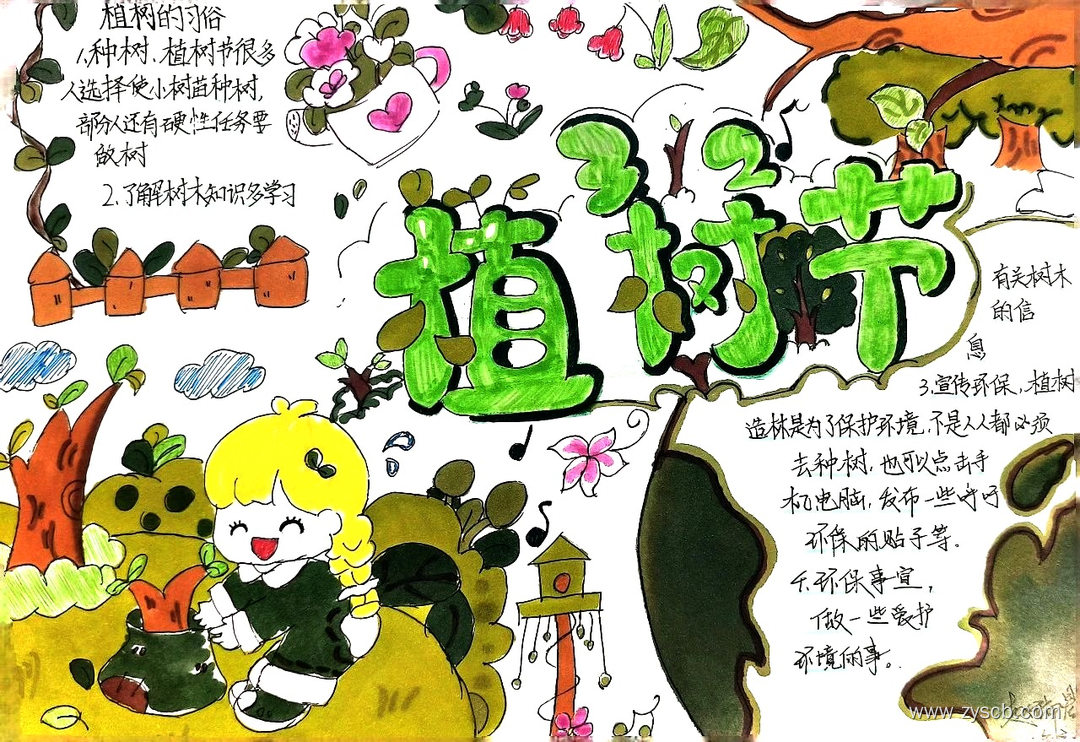 植树的习俗
1、种树、植树节很多
人选择使小树苗种树,
部分人还有硬性任务要
做树
2、了解树木知识多学习
3 12
植树节
有关树木
的信
息
3、宣传环保、植树
造林是为了保护环境,不是人人都必须
去种树,也可以点击手
机电脑,发布一些呼吁
环保的贴子等.
4、环保事宜,
做一些爱护
环境的事。
www.zyscb.com